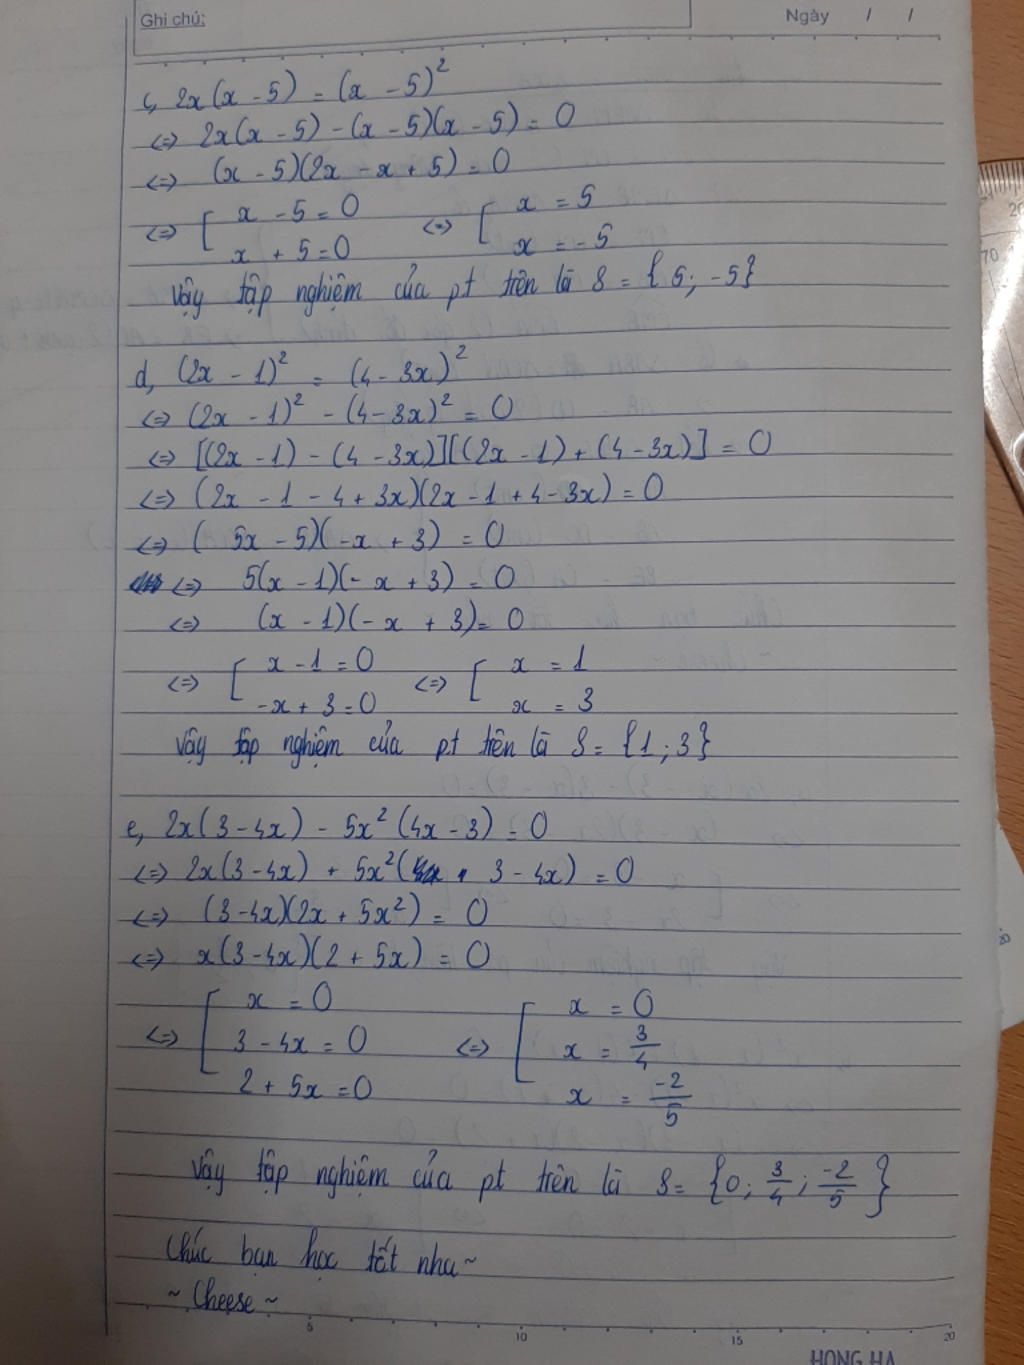 Ghi chú:
Ngày / /
c, 2x(x - 5) = (x - 5)²
<=> 2x(x - 5) - (x - 5)(x - 5) = 0
<=> (x - 5)(2x - x + 5) = 0
<=> [ x - 5 = 0 <=> [ x = 5
x + 5 = 0 x = -5
Vậy tập nghiệm của pt trên là S = {5; -5}
d, (2x - 1)² = (4 - 3x)²
<=> (2x - 1)² - (4 - 3x)² = 0
<=> [(2x - 1) - (4 - 3x)][(2x - 1) + (4 - 3x)] = 0
<=> (2x - 1 - 4 + 3x)(2x - 1 + 4 - 3x) = 0
<=> (5x - 5)(-x + 3) = 0
<=> 5(x - 1)(-x + 3) = 0
<=> (x - 1)(-x + 3) = 0
<=> [ x - 1 = 0 <=> [ x = 1
-x + 3 = 0 x = 3
Vậy tập nghiệm của pt trên là S = {1; 3}
e, 2x(3 - 4x) - 5x²(4x - 3) = 0
<=> 2x(3 - 4x) + 5x²(3 - 4x) = 0
<=> (3 - 4x)(2x + 5x²) = 0
<=> x(3 - 4x)(2 + 5x) = 0
[ x = 0 [ x = 0
<=> 3 - 4x = 0 <=> x = 3/4
2 + 5x = 0 x = -2/5
Vậy tập nghiệm của pt trên là S = {0; 3/4; -2/5}
Chúc bạn học tốt nha~
~ Cheese ~
5 10 15 20
HONG HA